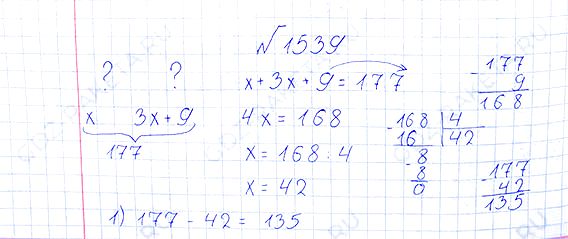 №1539
? ?
x 3x+9
177
x+3x+9=177
4x=168
x=168:4
x=42
-177
9
168
-168 | 4
16 | 42
-8
8
0
-177
42
135
1) 177-42= 135